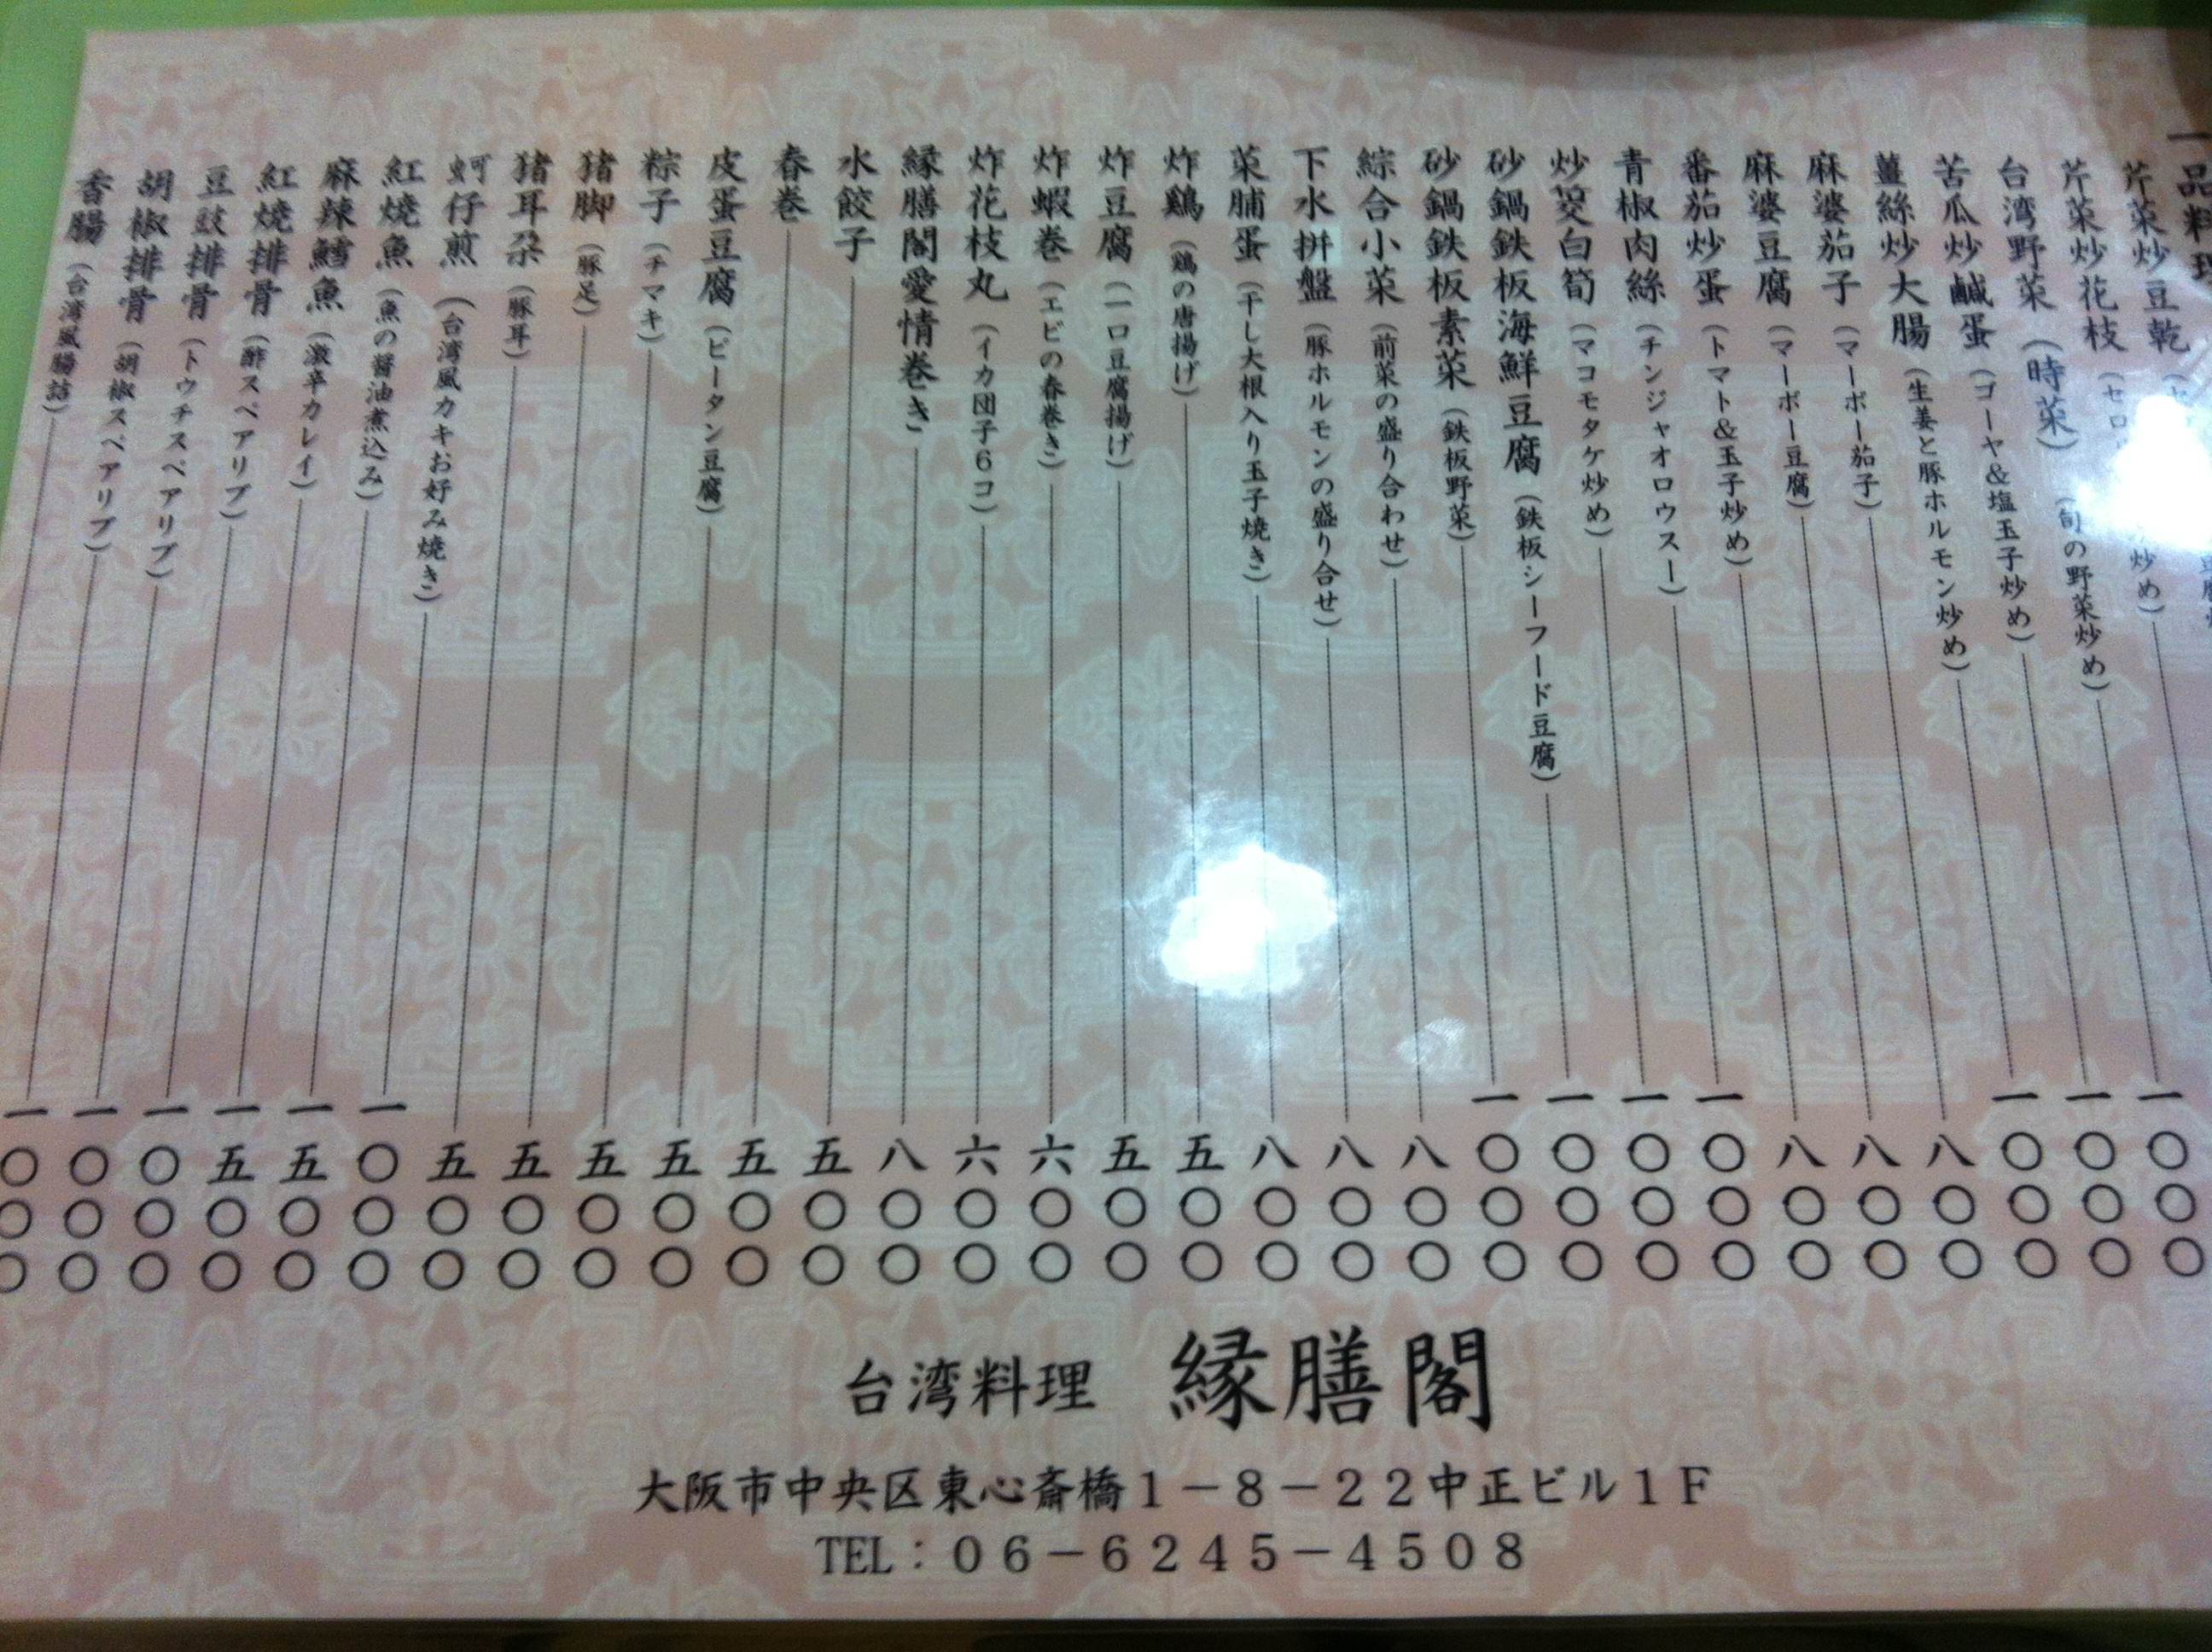 一品料理
芹菜炒豆乾
芹菜炒花枝（セロ 炒め）
台湾野菜（時菜）（旬の野菜炒め）一〇〇〇
苦瓜炒鹹蛋（ゴーヤ＆塩玉子炒め）一〇〇〇
薑絲炒大腸（生姜と豚ホルモン炒め）一〇〇〇
麻婆茄子（マーボー茄子）八〇〇
麻婆豆腐（マーボー豆腐）八〇〇
番茄炒蛋（トマト＆玉子炒め）八〇〇
青椒肉絲（チンジャオロウスー）一〇〇〇
炒茭白筍（マコモタケ炒め）一〇〇〇
砂鍋鉄板海鮮豆腐（鉄板シーフード豆腐）一〇〇〇
砂鍋鉄板素菜（鉄板野菜）一〇〇〇
綜合小菜（前菜の盛り合わせ）八〇〇
下水拼盤（豚ホルモンの盛り合せ）八〇〇
菜脯蛋（干し大根入り玉子焼き）八〇〇
炸鶏（鶏の唐揚げ）五〇〇
炸豆腐（一口豆腐揚げ）五〇〇
炸蝦巻（エビの春巻き）六〇〇
炸花枝丸（イカ団子６コ）六〇〇
縁膳閣愛情巻き 八〇〇
水餃子 五〇〇
春巻 五〇〇
皮蛋豆腐（ピータン豆腐）五〇〇
粽子（チマキ）五〇〇
猪脚（豚足）五〇〇
猪耳朶（豚耳）五〇〇
蚵仔煎（台湾風カキお好み焼き）一〇〇〇
紅燒魚（魚の醤油煮込み）一五〇〇
麻辣鱈魚（激辛カレイ）一五〇〇
紅燒排骨（酢スペアリブ）一〇〇〇
豆豉排骨（トウチスペアリブ）一〇〇〇
胡椒排骨（胡椒スペアリブ）一〇〇〇
香腸（台湾風腸詰）
台湾料理 縁膳閣
大阪市中央区東心斎橋１－８－２２中正ビル１Ｆ
TEL：０６－６２４５－４５０８